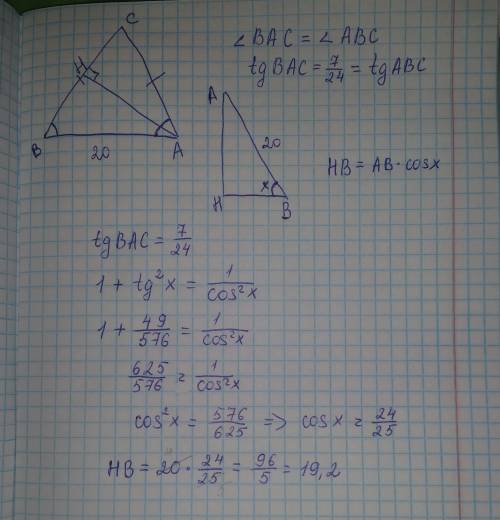 C
B
20
A
∠BAC = ∠ABC
tgBAC = 7/24 = tgABC
A
20
x
H
B
HB = AB·cosx
tgBAC = 7/24
1 + tg²x = 1/cos²x
1 + 49/576 = 1/cos²x
625/576 = 1/cos²x
cos²x = 576/625 => cosx = 24/25
HB = 20 · 24/25 = 96/5 = 19,2